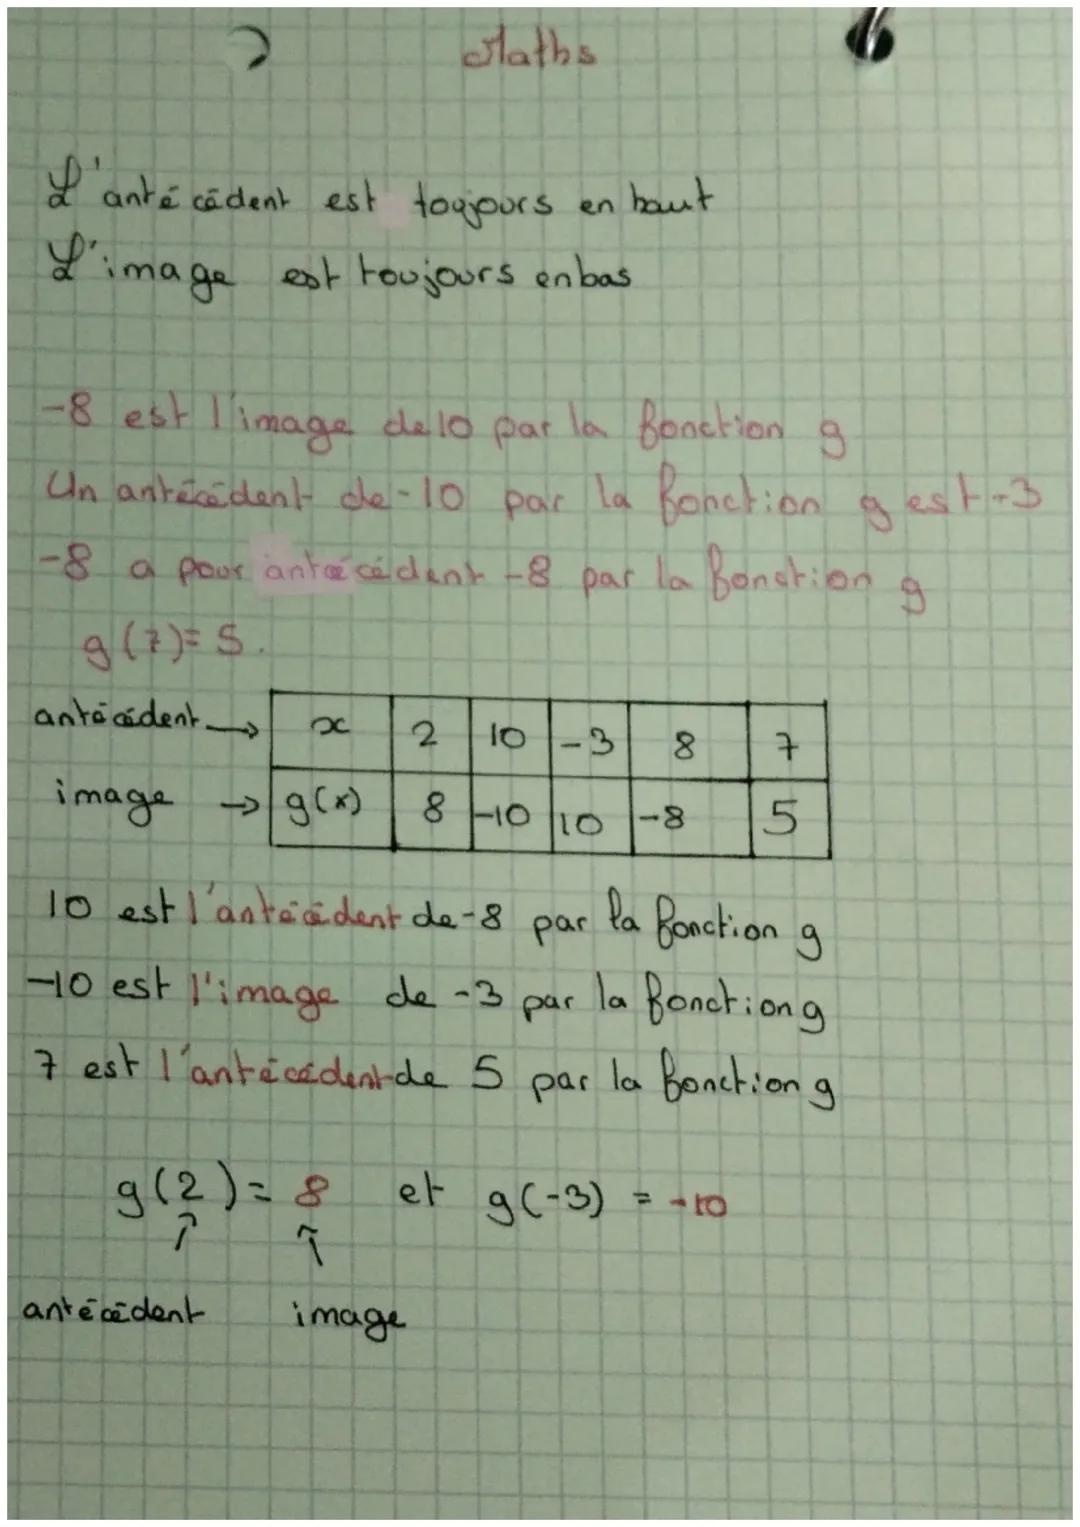 Maths
L'antécédent est toujours en haut
L'image est toujours en bas
-8 est l'image de 10 par la fonction g
Un antécédent de -10 par la fonction g est -3
-8 a pour antécédent -8 par la fonction g
g(7)= 5.
antécédent → x 2 10 -3 8 7
image → g(x) 8 -10 10 -8 5
10 est l'antécédent de -8 par la fonction g
-10 est l'image de -3 par la fonction g
7 est l'antécédent de 5 par la fonction g
g(2)= 8 et g(-3) = -10
↑ ↑
antécédent image